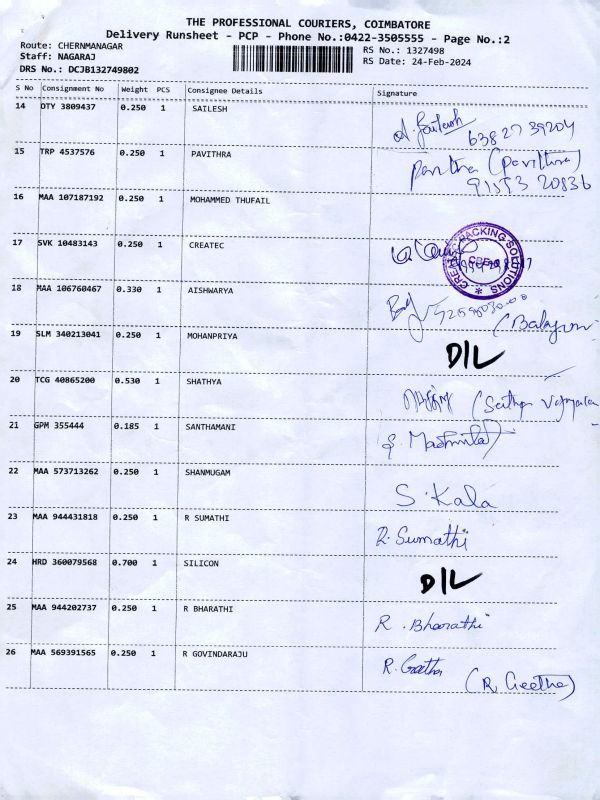 THE PROFESSIONAL COURIERS, COIMBATORE
Delivery Runsheet - PCP - Phone No.:0422-3505555 - Page No.:2
Route: CHERNMANAGAR RS No.: 1327498
Staff: NAGARAJ RS Date: 24-Feb-2024
DRS No.: DCJB132749802
S No Consignment No Weight PCS Consignee Details Signature
14 OTY 3809437 0.250 1 SAILESH
A. Sailesh 63827 39204
15 TRP 4537576 0.250 1 PAVITHRA
(Pavithra)
91553 20836
16 MAA 107187192 0.250 1 MOHAMMED THUFAIL
17 SVK 10483143 0.250 1 CREATEC
PACKING SOLUTIONS
CBE
18 MAA 106760467 0.330 1 AISHWARYA
19 SLM 340213041 0.250 1 MOHANPRIYA D/L
20 TCG 40865200 0.530 1 SHATHYA
21 GPM 355444 0.185 1 SANTHAMANI
22 MAA 573713262 0.250 1 SHANMUGAM
S. Kala
23 MAA 944431818 0.250 1 R SUMATHI
R. Sumathi
24 HRD 360079568 0.700 1 SILICON D/L
25 MAA 944202737 0.250 1 R BHARATHI
R. Bharathi
26 MAA 569391565 0.250 1 R GOVINDARAJU
R. Geetha
(R. Geetha)